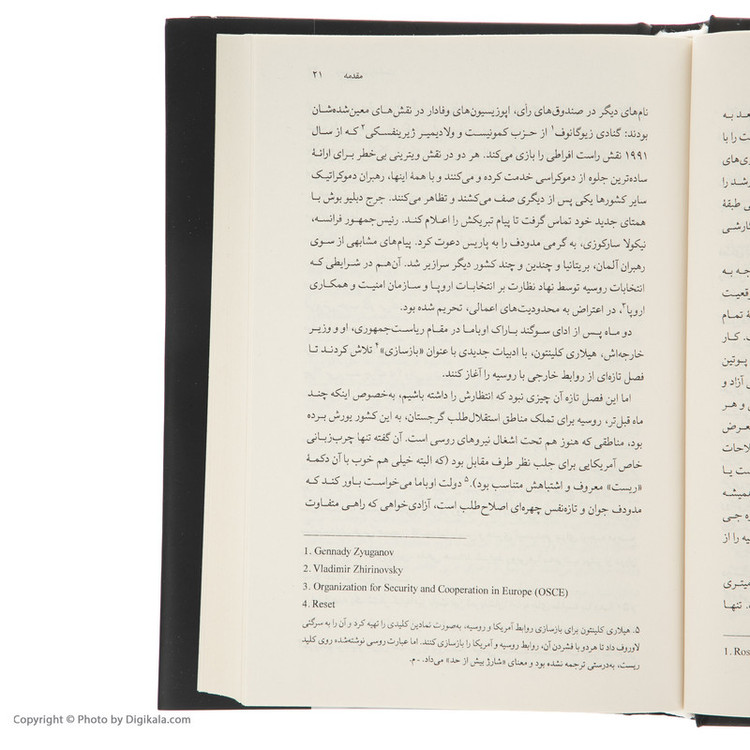 مقدمه ۲۱
نام‌های دیگر در صندوق‌های رأی، اپوزیسیون‌های وفادار در نقش‌های معین‌شده‌شان
بودند: گنادی زیوگانوف۱ از حزب کمونیست و ولادیمیر ژیرینفسکی۲ که از سال
۱۹۹۱ نقش راست افراطی را بازی می‌کند. هر دو در نقش ویترینی بی‌خطر برای ارائهٔ
ساده‌ترین جلوه از دموکراسی خدمت کرده و می‌کنند و با همهٔ اینها، رهبران دموکراتیک
سایر کشورها یکی پس از دیگری صف می‌کشند و تظاهر می‌کنند. جرج دبلیو بوش با
همتای جدید خود تماس گرفت تا پیام تبریکش را اعلام کند. رئیس‌جمهور فرانسه،
نیکولا سارکوزی، به گرمی مدودف را به پاریس دعوت کرد. پیام‌های مشابهی از سوی
رهبران آلمان، بریتانیا و چندین و چند کشور دیگر سرازیر شد. آن‌هم در شرایطی که
انتخابات روسیه توسط نهاد نظارت بر انتخابات اروپا و سازمان امنیت و همکاری
اروپا۳، در اعتراض به محدودیت‌های اعمالی، تحریم شده بود.
دو ماه پس از ادای سوگند باراک اوباما در مقام ریاست‌جمهوری، او و وزیر
خارجه‌اش، هیلاری کلینتون، با ادبیات جدیدی با عنوان «بازسازی»۴ تلاش کردند تا
فصل تازه‌ای از روابط خارجی با روسیه را آغاز کنند.
اما این فصل تازه آن چیزی نبود که انتظارش را داشته باشیم، به‌خصوص اینکه چند
ماه قبل‌تر، روسیه برای تملک مناطق استقلال‌طلب گرجستان، به این کشور یورش برده
بود، مناطقی که هنوز هم تحت اشغال نیروهای روسی است. آن گفته تنها چرب‌زبانی
خاص آمریکایی برای جلب نظر طرف مقابل بود (که البته خیلی هم خوب با آن دکمهٔ
«ریست» معروف و اشتباهش متناسب بود).۵ دولت اوباما می‌خواست باور کند که
مدودف جوان و تازه‌نفس چهره‌ای اصلاح‌طلب است، آزادی‌خواهی که راهی متفاوت
1. Gennady Zyuganov
2. Vladimir Zhirinovsky
3. Organization for Security and Cooperation in Europe (OSCE)
4. Reset
۵. هیلاری کلینتون برای بازسازی روابط آمریکا و روسیه، به‌صورت نمادین کلیدی را تهیه کرد و آن را به سرگئی
لاوروف داد تا هر دو با فشردن آن، روابط روسیه و آمریکا را بازسازی کنند. اما عبارت روسی نوشته‌شده روی کلید
ریست، به‌درستی ترجمه نشده بود و معنای «شارژ بیش از حد» می‌داد. ـ م.
Copyright © Photo by Digikala.com